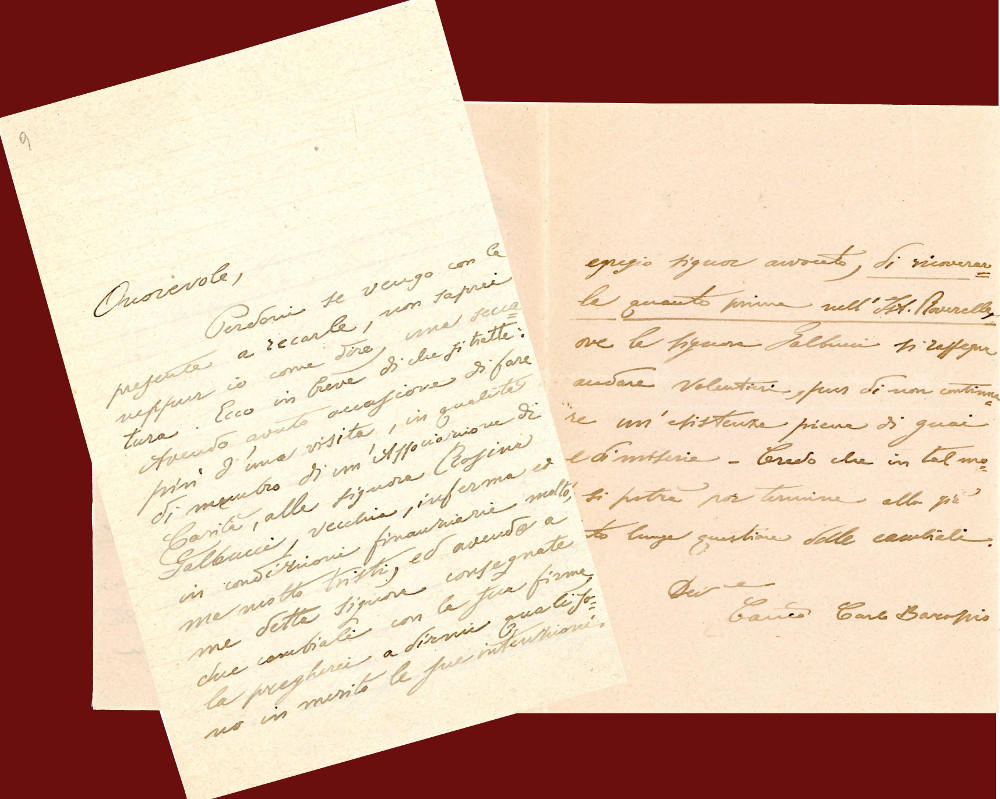 9
Onorevole,
Perdoni se vengo con la
presente a recarle, non saprei
neppur io come dire, una secca=
tura. Ecco in breve di che si tratta:
Avendo avuto occasione di fare
più d'una visita, in qualità
di membro di un'Associazione di
Carità, alla signora Rosina
Galbucci, vecchia, inferma ed
in condizioni finanziarie molto,
ma molto tristi, ed avendo a
me detta signora consegnate
due cambiali con la sua firma
la pregherei a dirmi quali so=
no in merito le sue intenzioni.
egregio signor avvocato, di ricoverar=
la quanto prima nell'Ist.
ove la signora Galbucci si rassegna
andare volentieri, pur di non continua=
re un'esistenza piena di guai
e di miserie – Credo che in tal mo=
si potrà por termine alla già
to lunga questione delle cambiali.
Dev.
Carlo